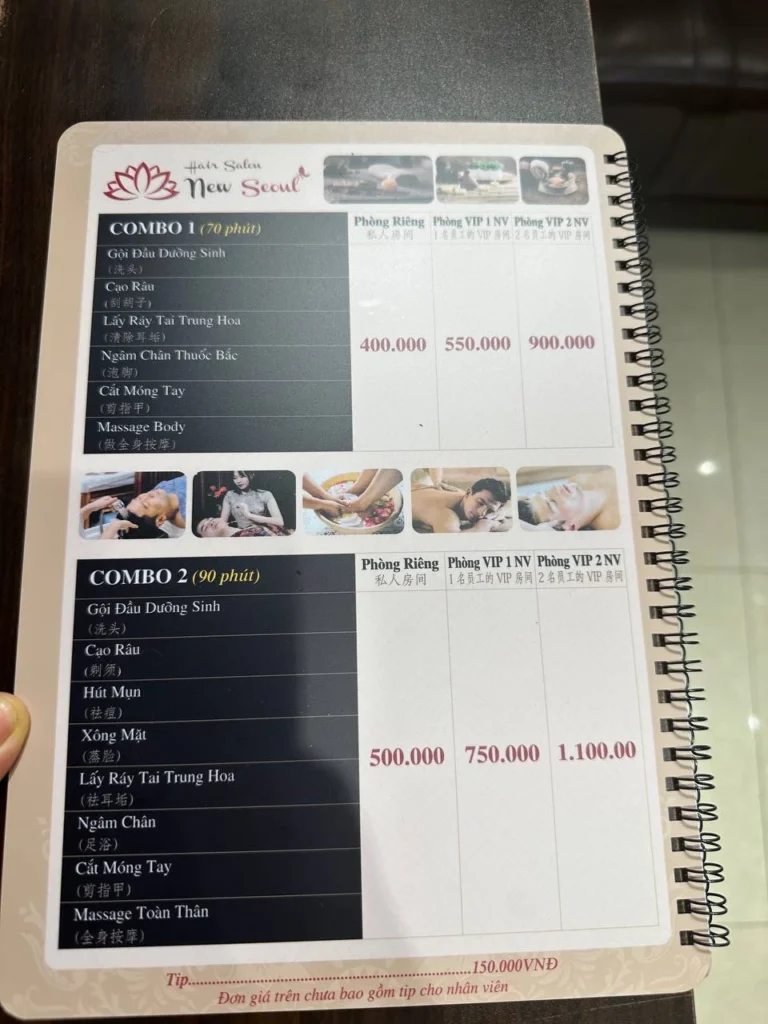 Hair Salon
New Seoul
COMBO 1 (70 phút)
Phòng Riêng
私人房间
Phòng VIP 1 NV
1名员工的 VIP 房间
Phòng VIP 2 NV
2名员工的 VIP 房间
Gội Đầu Dưỡng Sinh
(洗头)
Cạo Râu
(刮胡子)
Lấy Ráy Tai Trung Hoa
(清除耳垢)
Ngâm Chân Thuốc Bắc
(泡脚)
Cắt Móng Tay
(剪指甲)
Massage Body
(做全身按摩)
400.000
550.000
900.000
COMBO 2 (90 phút)
Phòng Riêng
私人房间
Phòng VIP 1 NV
1名员工的 VIP 房间
Phòng VIP 2 NV
2名员工的 VIP 房间
Gội Đầu Dưỡng Sinh
(洗头)
Cạo Râu
(剃须)
Hút Mụn
(祛痘)
Xông Mặt
(蒸脸)
Lấy Ráy Tai Trung Hoa
(祛耳垢)
Ngâm Chân
(足浴)
Cắt Móng Tay
(剪指甲)
Massage Toàn Thân
(全身按摩)
500.000
750.000
1.100.00
Tip..........................................................150.000VNĐ
Đơn giá trên chưa bao gồm tip cho nhân viên